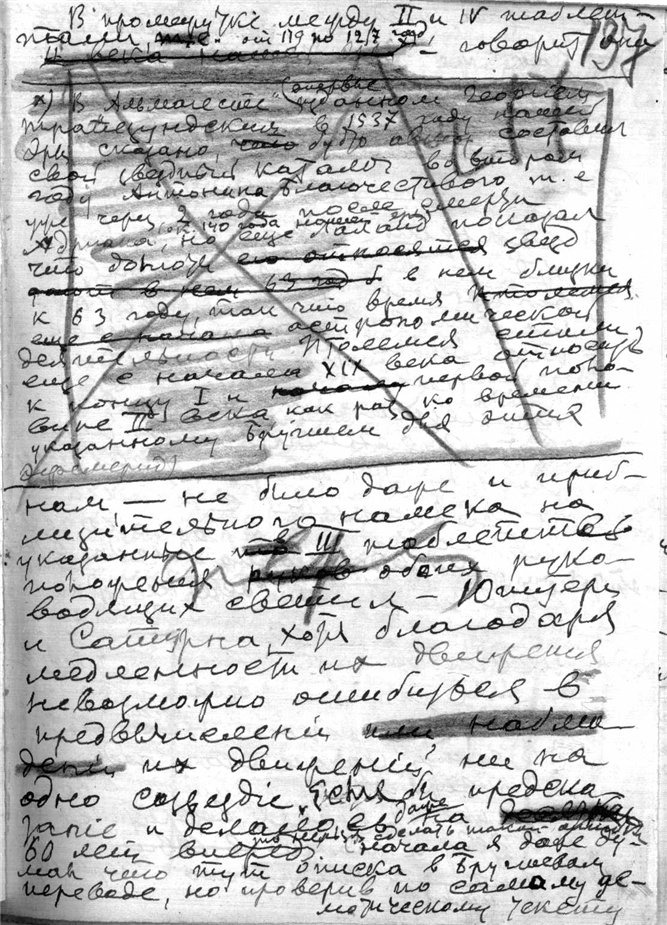 В промежутке между II и IV таблет-
тами т.е. от 119 по 127 год
— говорит она
137
х) В „Альмагесте“ (впервые
изданном Георгием
Трапезундским в 1537 году нашей
эры сказано, будто автор составил
свой звездный каталог во втором
году Антонина Благочестивого т.е
уже через 2 года после смерти
Адриана, ок. 140 года нашей эры, но еще показал
что долготы его относятся звезд
дают в нем 63 год б в нем близки
к 63 году, так что время Птолемея
астрономической
деятельности Птолемея стали
еще с начала XIX века относить
к концу I и началу первой поло-
вине II века как раз ко времени
указанному Бругшем для этих
эфемерид)
нам — не было даже и приб-
лизительного намека на
указанные в III таблетте
положения обоих руко-
водящих светил — Юпитера
и Сатурна, хотя благодаря
медленности их движения
невозможно ошибиться в
предвычислении или наблю
дении их движений, ни на
одно созвездие, если бы предска
зание и делалось даже на
60 лет вперед. Сначала я даже ду-
мал что тут описка в Бругшевом
переводе, но проверив по самому де-
мотическому тексту